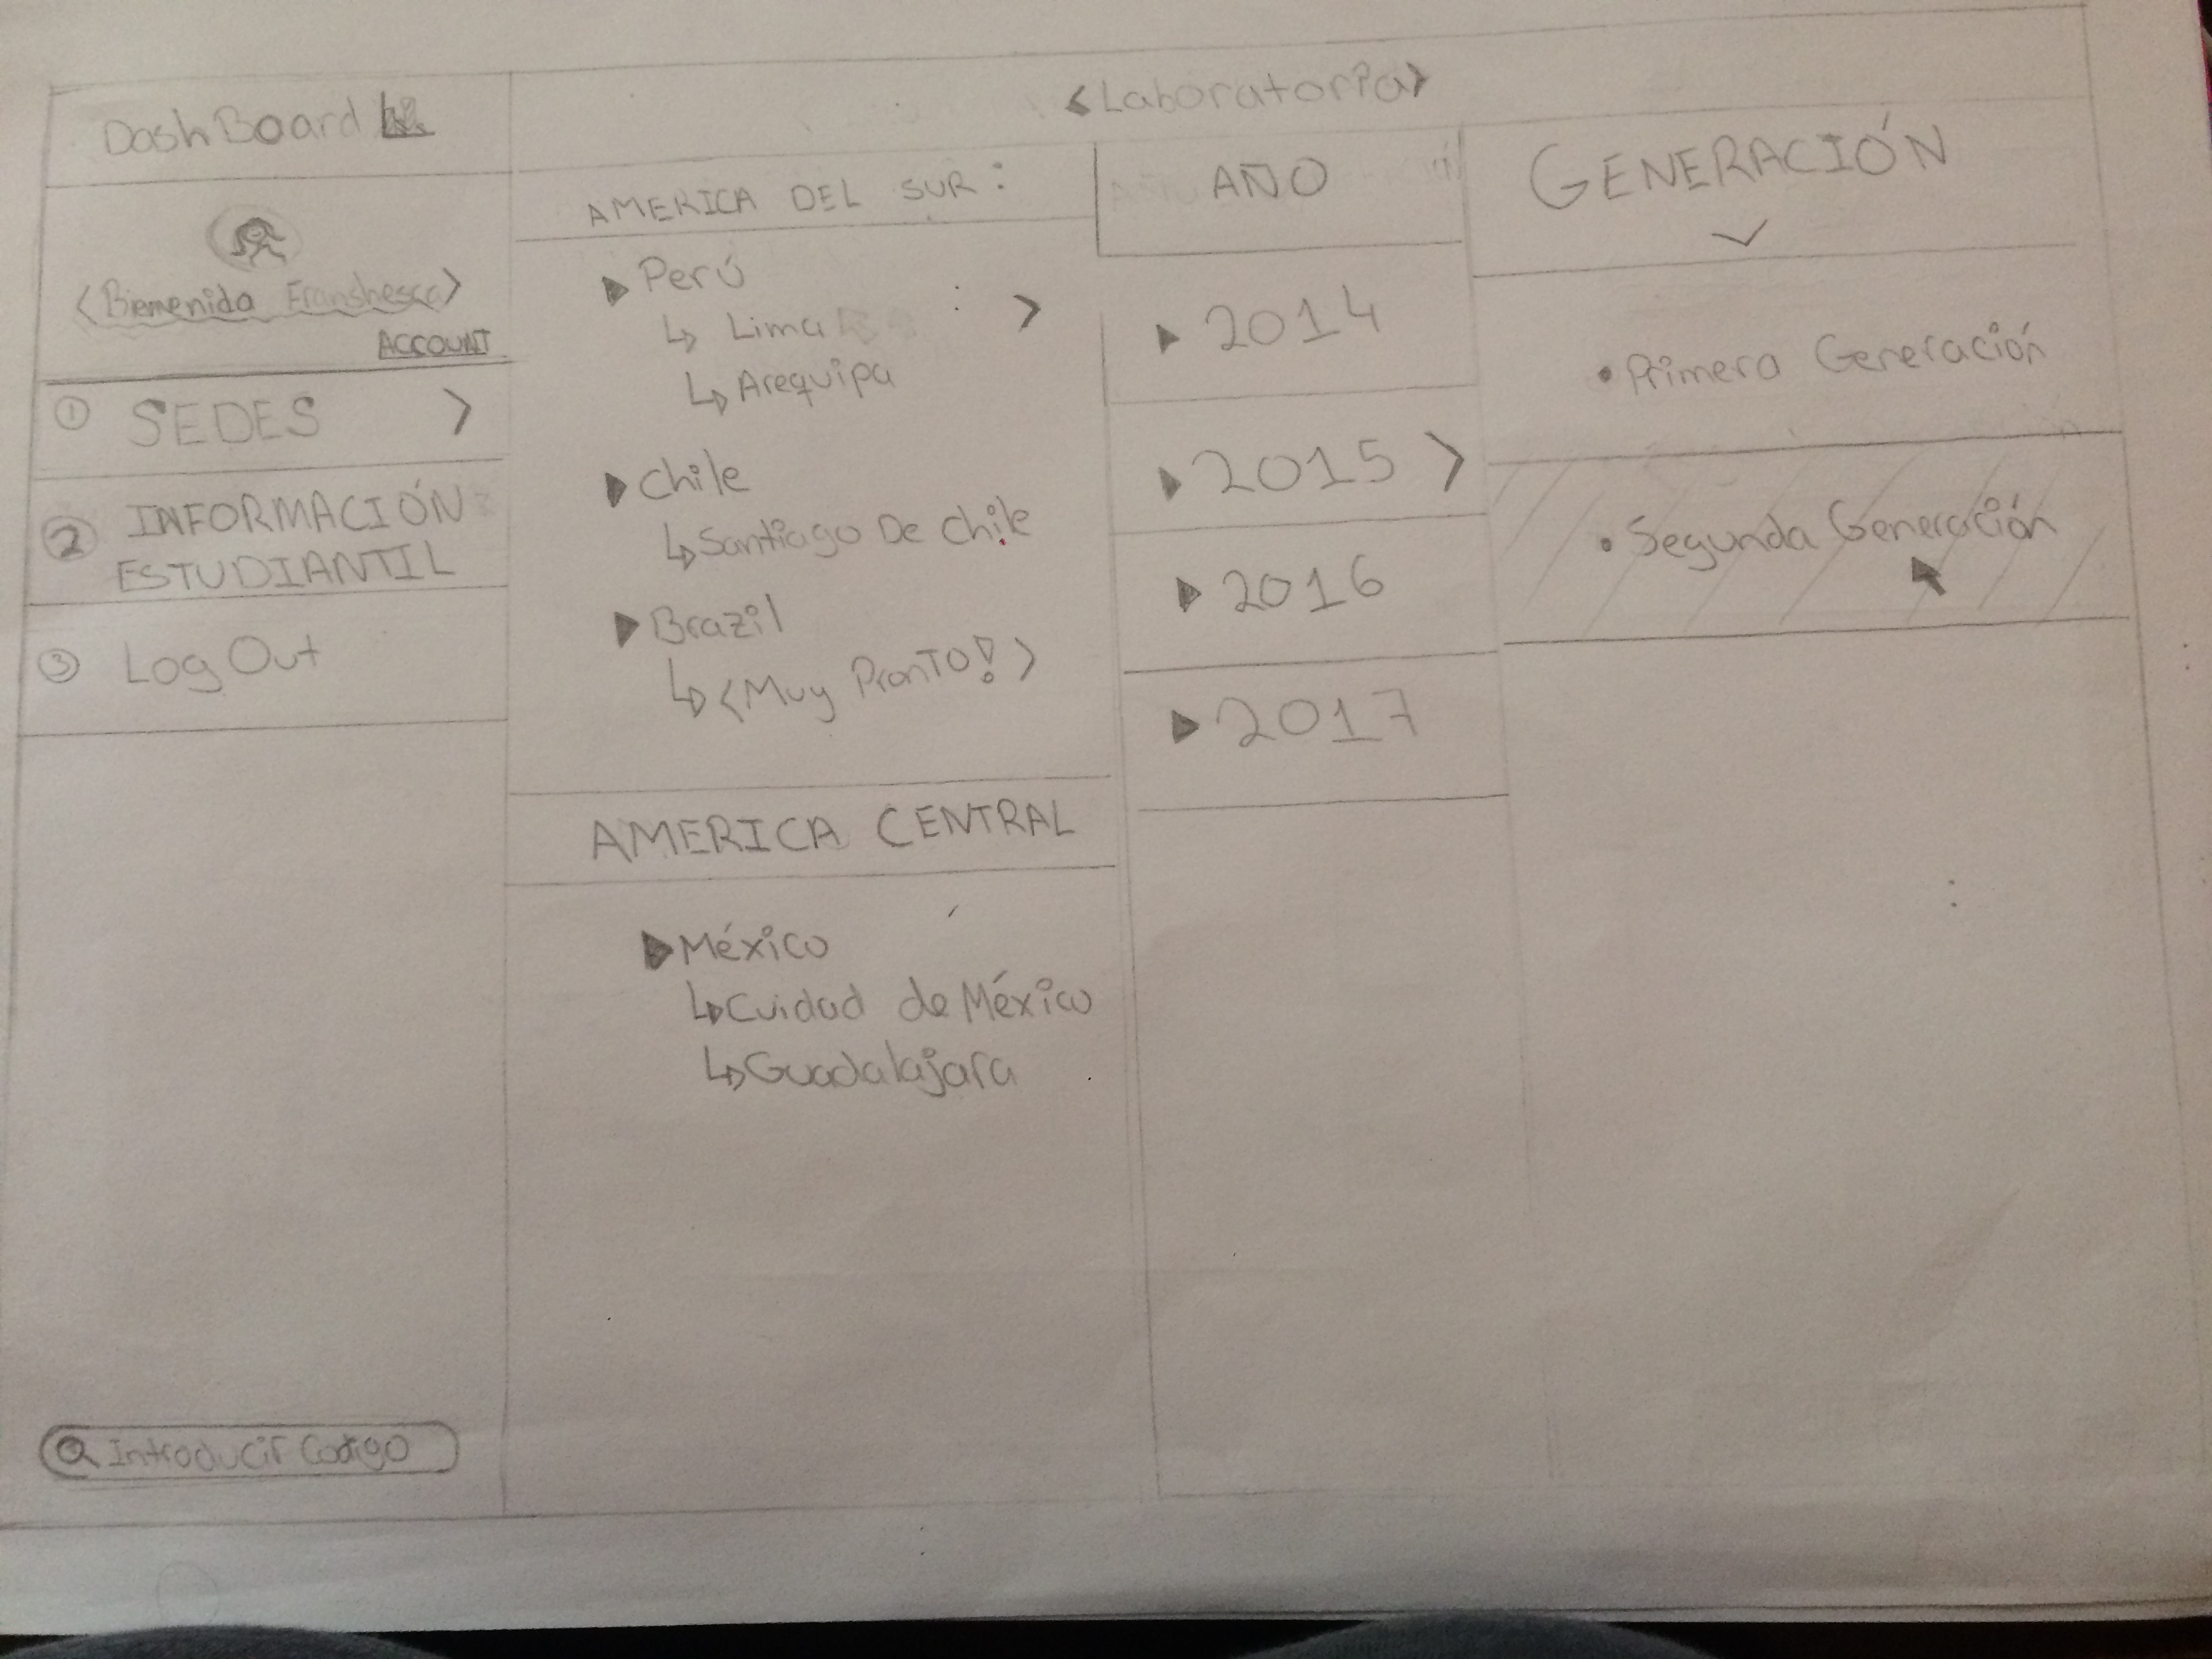 DashBoard
<Laboratoria>
<Bienvenida Franshesca>
ACCOUNT
① SEDES >
② INFORMACIÓN
ESTUDIANTIL
③ Log Out
Introducir Codigo
AMERICA DEL SUR:
Perú
Lima >
Arequipa
Chile
Santiago De Chile
Brazil
<Muy PronTO!>
AMERICA CENTRAL
México
Cuidad de México
Guadalajara
AÑO
2014
2015 >
2016
2017
GENERACIÓN
• Primera Generación
• Segunda Generación